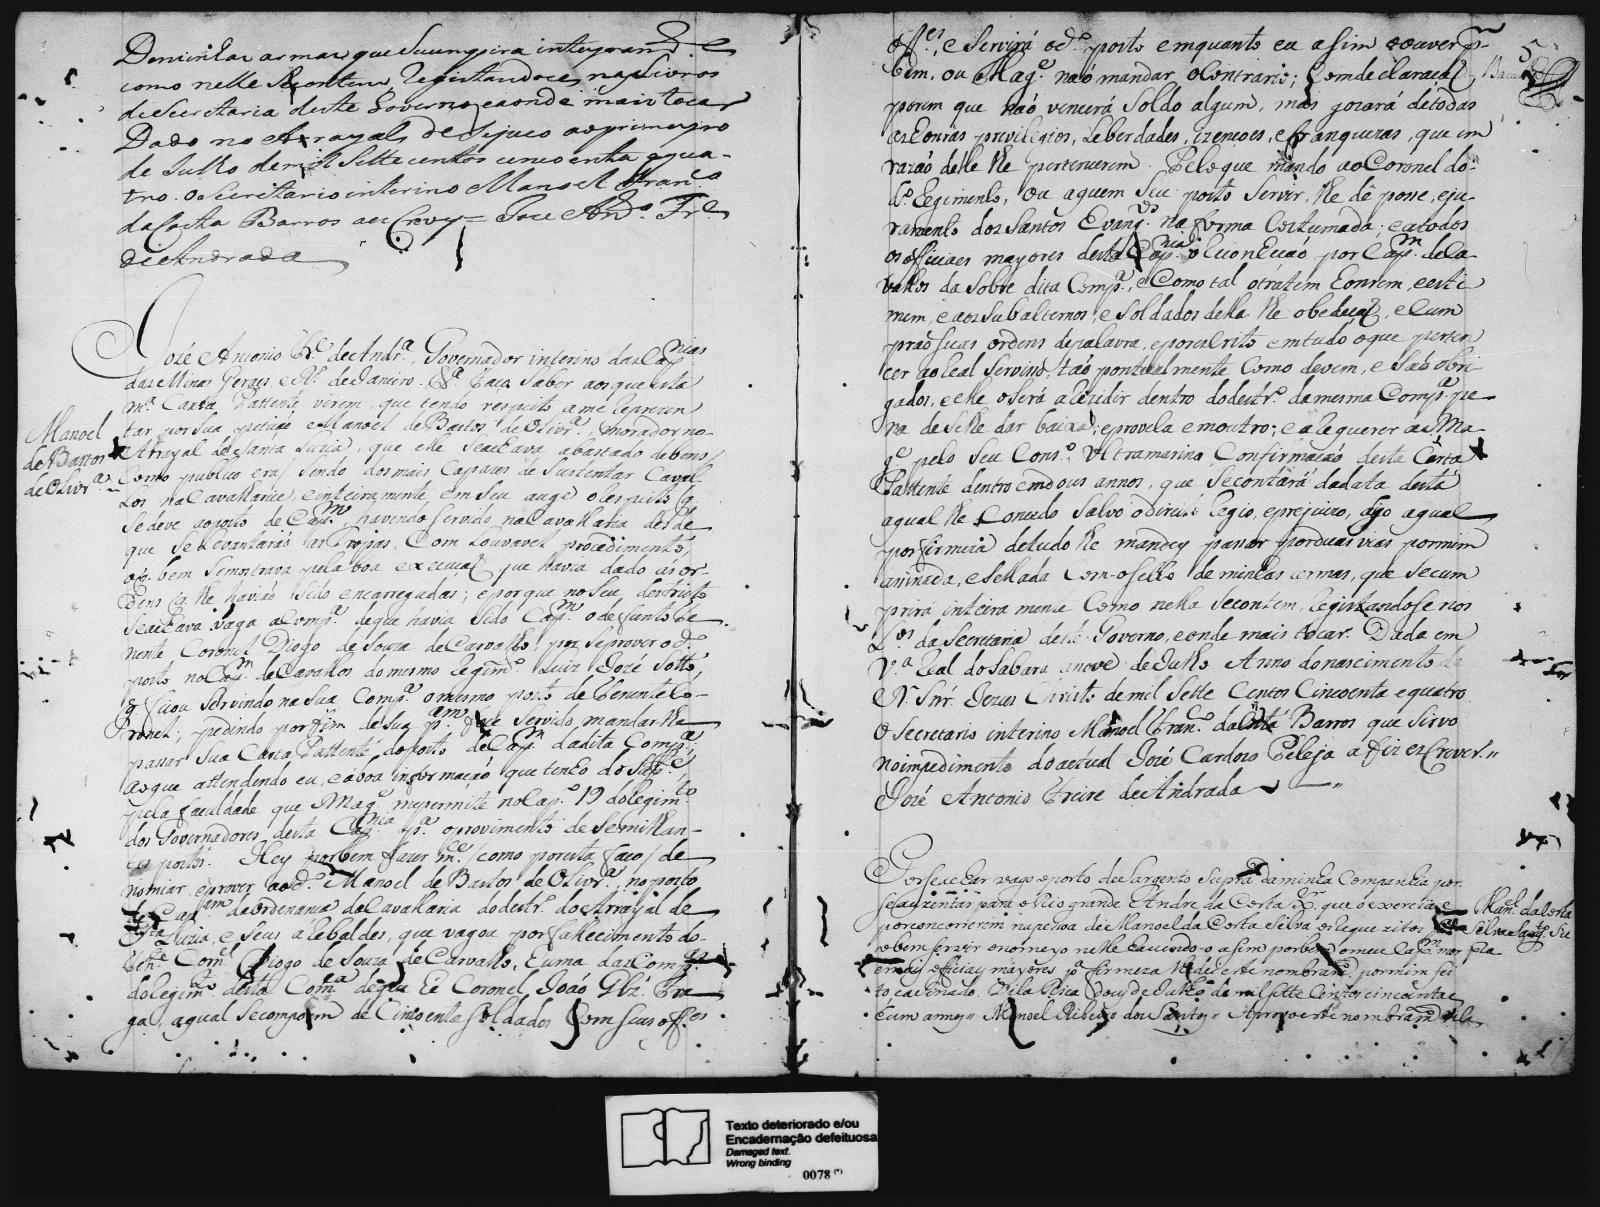 De minhas armas que Se cumprira inteyram.te
como nelle se contem, Registandoce, nas Livros
da Secretaria deste Governo, e aonde mais tocar
Dado no Arrayal do Tejuco ao primeyro
de Julho de mil Sette centos cincoenta e qua-
tro. O Secretario interino Manoel Fran.co
da Costa Barros a escrevy = Joze Ant.o Fr.e
de Andrada
José Antonio Fr.e de Andr.a Governador interino das Cap.nias
das Minas Geraes, e R.o de Janeiro. &.a Faço Saber aos que esta
m.a Carta Pattente virem, que tendo respeito a me reprezen
tar por sua petição Manoel de Bastos de Olivr.a, morador no
Arrayal de Santa Luzia, que elle Se achava abastado de bens /
como publico era / sendo dos mais capazes de Sustentar Caval-
los na Cavallaria, e inteiramente, em Seu auge o respeito q.
Se deve ao posto de Cap.m, havendo Servido na Cavallaria desde
que Se Levantarão as Tropas, Com Louvavel procedimento,
bem Se mostrava pela boa execução que havia dado ás or-
dens q. lhe havião Sido encarregadas; e porque no Seu destricto
Se achava vaga a Comp.a de que havia Sido Cap.m o defunto Te-
nente Coronel Diogo de Souza de Carvalho, por Se prover o d.o
posto no Cap.m de Cavallos do mesmo Regim.to Luiz José Sotto,
e ficou Servindo na Sua Comp.a o mesmo posto de Tenente Co-
ronel; pedindo por fim de Sua p.am fosse Servido mandarlhe
passar Sua Carta Pattente do posto de Cap.m da dita Comp.a;
ao que attendendo eu, e á boa informação que tenho do Sup.e,
pela faculdade que S Mag.e me permite no Cap.o 19 do Regim.to
dos Governadores desta Cap.nia p.a o provimento de Semilhan-
tes postos. Hey por bem fazer m.ce / como por esta faço / de
nomiar, e prover ao d.o Manoel de Bastos de Olivr.a no posto
de Cap.am da ordenança da Cavallaria do destr.o do Arrayal de
Sta Luzia, e Seus arebaldes, que vagou por fallecimento do
Ten.e Cor.el Diogo de Souza de Carvalho, e uma das Comp.as
do Regim.to desta Com.a de que he Coronel, João Glz. Fra
ga, a qual Se compoem de Cincoenta Soldados com Seus off.es
Manoel
de Bastos
de Olivr.a
off.es, e Servirá o d.o posto emquanto eu asim o ouver p.r
bem, ou S Mag.e não mandar o Contrario; Com declaração
porem que não vencerá Soldo algum, mas gozará de todas
as honras, previlegios, Leberdades, izençoes, e franquezas, que em
razão delle lhe pertencerem. Pelo que mando ao Coronel do
d.o Regimento, ou a quem Seu posto Servir, lhe dê posse, e ju-
ramento dos Santos Evang.os na forma Costumada; e a todos
os officiaes mayores desta Cap.nia o conheção por Cap.m de Ca
vallos da Sobre dita Comp.a, e Como tal o tratem, honrem, e esti
mem, e aos Subalternos, e Soldados della lhe obedeção, e Cum
prão Suas ordens de palavra, e por escrito em tudo o que perten
cer ao Real Serviço, tão pontualmente Como devem, e São obri
gados, e elle o Será a Rezidir dentro do destr.o da mesma Comp.a pe
na de Se lhe dar baixa, e provela em outro; e a Requerer a S Ma-
g.e pelo Seu Cons.o Ultramarino Confirmação desta Carta
Pattente dentro em dous annos, que Se contará da data desta
a qual lhe Concedo Salvo o direito Regio, e prejuizo, digo a qual
por firmeza de tudo lhe mandey passar por duas vias por mim
asinada, e Sellada Com o Sello de minhas armas, que Se cum
prirá inteiramente Como nella Se contem, Registandose nos
L.os da Secretaria deste Governo, e onde mais tocar. Dada em
V.a Real do Sabará a nove de Julho Anno do nascimento de
N. Snr. Jezus Christo de mil Sette Centos Cincoenta e quatro
O Secretario interino Manoel Fran.co da Costa Barros que Sirvo
no impedimento do actual José Cardozo Peleja a fiz escrever. "
José Antonio Freire de Andrada
Por Se achar vago o posto de Sargento Supra da minha Companhia por
Se auzentar para o Rio grande Andre da Costa X.er que o exercia e
por concorrerem na peçoa de Manoel da Costa Silva os requezitos
e bem servir o nomeyo nelle havendo-o asim por bem o meu Cap.m mor pla
e mais officiais mayores p.a firmeza lhe dei este nombram.to por mim fei
to, e asinado. Vila Rica dous de Julho de mil Sette Centos e cincoenta e
hum annos " Manoel Ribeiro dos Santos " Aprovo este nombram.to Vila
Man.l da Costa
Silva Sarg.to Su